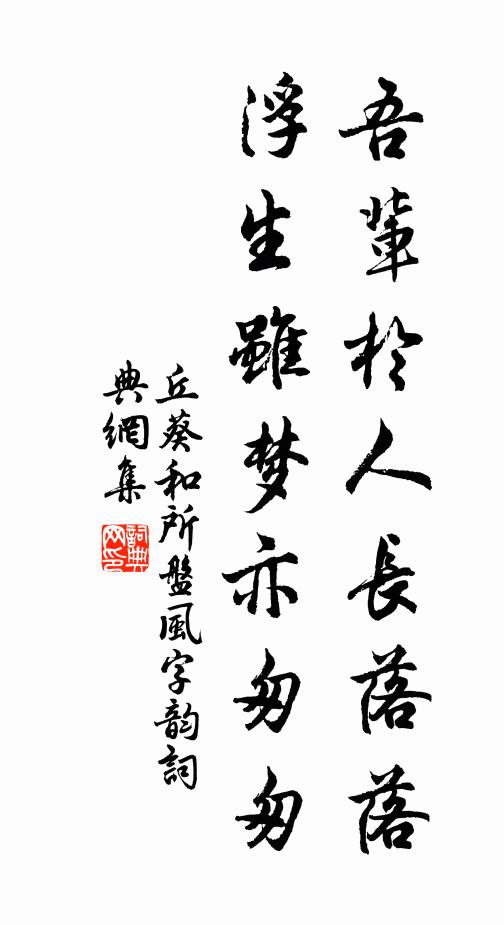 吾輩於人長落落
浮生雖梦亦匆匆
丘葵和所盤風字韵詞
典網集
詞典
网印